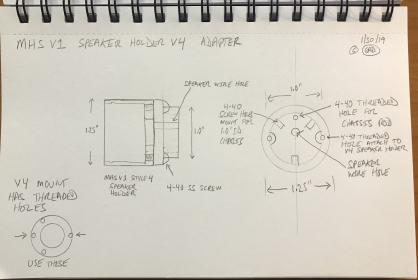 MHS V1 SPEAKER HOLDER V4 ADAPTER
1/30/19
SPEAKER WIRE HOLE
1.25"
1.0"
MHS V1 STYLE 4
SPEAKER
HOLDER
4-40 SS SCREW
1.0"
4-40
SCREW HOLE
MOUNT FOR
1.0" SQ
CHASSIS
4-40 THREADED
HOLE FOR
CHASSIS ROD
4-40 THREADED
HOLE ATTACH TO
V4 SPEAKER HOLDER
SPEAKER
WIRE HOLE
1.25"
V4 MOUNT
HAS THREADED
HOLES
USE THESE